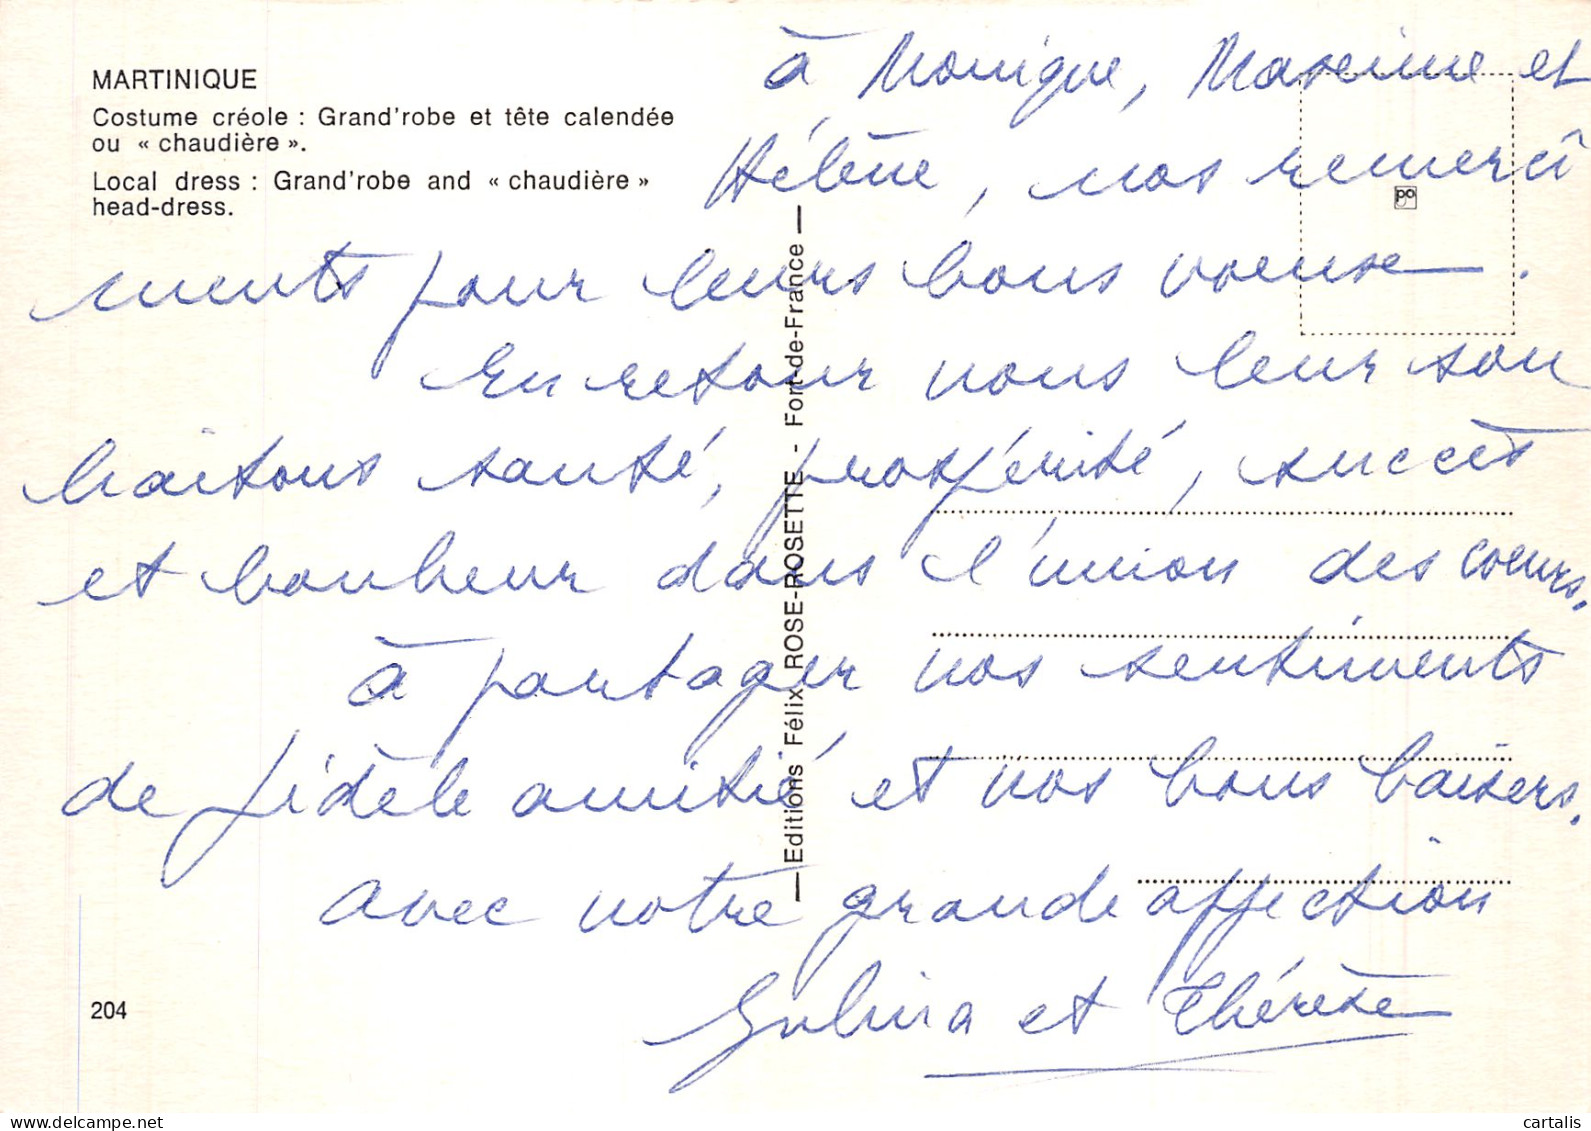 MARTINIQUE
Costume créole : Grand'robe et tête calendée
ou « chaudière ».
Local dress : Grand'robe and « chaudière »
head-dress.
à Monique, Maxime et
Hélène, nos remercî
ments pour leurs bons voeux.
En retour nous leur sou
haitons santé, prospérité, succès
et bonheur dans l'union des coeurs.
à partager nos sentiments
de fidèle amitié et nos bons baisers.
avec notre grande affection
et Thérèse
Editions Félix ROSE-ROSETTE - Fort-de-France
po
204
delcampe.net
cartalis